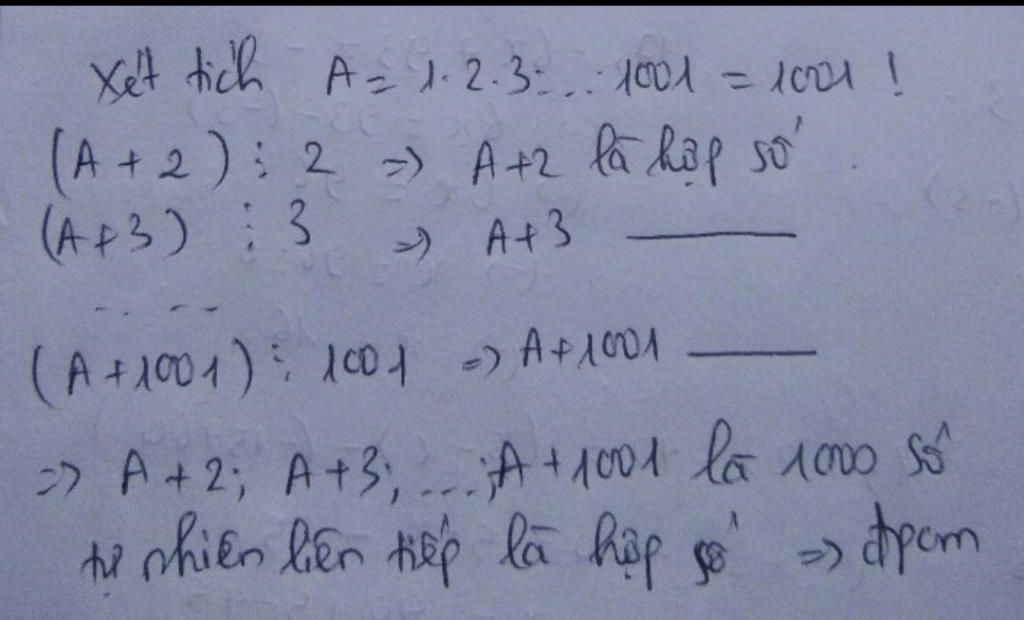 Xét tích A = 1.2.3.....1001 = 1001!
(A + 2) ⋮ 2 => A+2 là hợp số
(A+3) ⋮ 3 => A+3 ———
.. .. ..
(A+1001) ⋮ 1001 => A+1001 ———
=> A+2; A+3; ...; A+1001 là 1000 số
tự nhiên liên tiếp là hợp số => đpcm